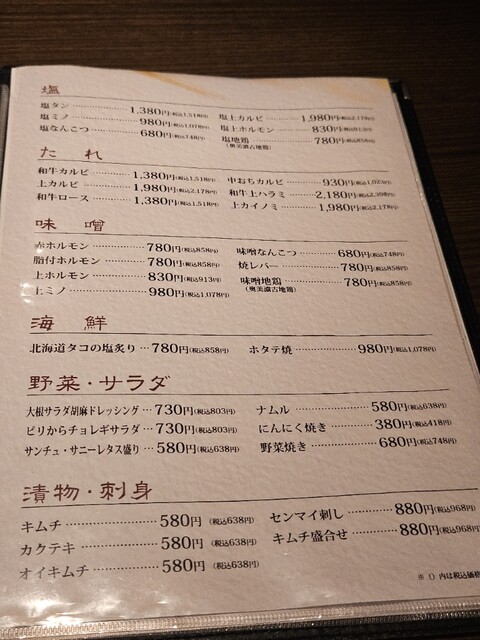 塩
塩タン 1,380円(税込1,518円)
塩ミノ 980円(税込1,078円)
塩なんこつ 680円(税込748円)
塩上カルビ 1,980円(税込2,178円)
塩上ホルモン 830円(税込913円)
塩地鶏 780円(税込858円)
(奥美濃古地鶏)
たれ
和牛カルビ 1,380円(税込1,518円)
上カルビ 1,980円(税込2,178円)
和牛ロース 1,380円(税込1,518円)
中おちカルビ 930円(税込1,023円)
和牛上ハラミ 2,180円(税込2,398円)
上カイノミ 1,980円(税込2,178円)
味噌
赤ホルモン 780円(税込858円)
脂付ホルモン 780円(税込858円)
上ホルモン 830円(税込913円)
上ミノ 980円(税込1,078円)
味噌なんこつ 680円(税込748円)
焼レバー 780円(税込858円)
味噌地鶏 780円(税込858円)
(奥美濃古地鶏)
海鮮
北海道タコの塩炙り 780円(税込858円)
ホタテ焼 980円(税込1,078円)
野菜・サラダ
大根サラダ胡麻ドレッシング 730円(税込803円)
ピリからチョレギサラダ 730円(税込803円)
サンチュ・サニーレタス盛り 580円(税込638円)
ナムル 580円(税込638円)
にんにく焼き 380円(税込418円)
野菜焼き 680円(税込748円)
漬物・刺身
キムチ 580円(税込638円)
カクテキ 580円(税込638円)
オイキムチ 580円(税込638円)
センマイ刺し 880円(税込968円)
キムチ盛合せ 880円(税込968円)
※()内は税込価格